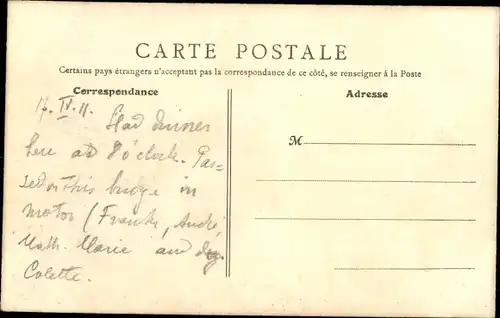 CARTE POSTALE
Certains pays étrangers n'acceptant pas la correspondance de ce côté, se renseigner à la Poste
Correspondance
Adresse
17.IV.11. Had dinner
here at 8 o'clock. Pas=
sed on this bridge in
motor (Frank, André,
Math. Marie and
Colette.
M